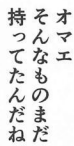 オマエ
そんなものまだ
持ってたんだね